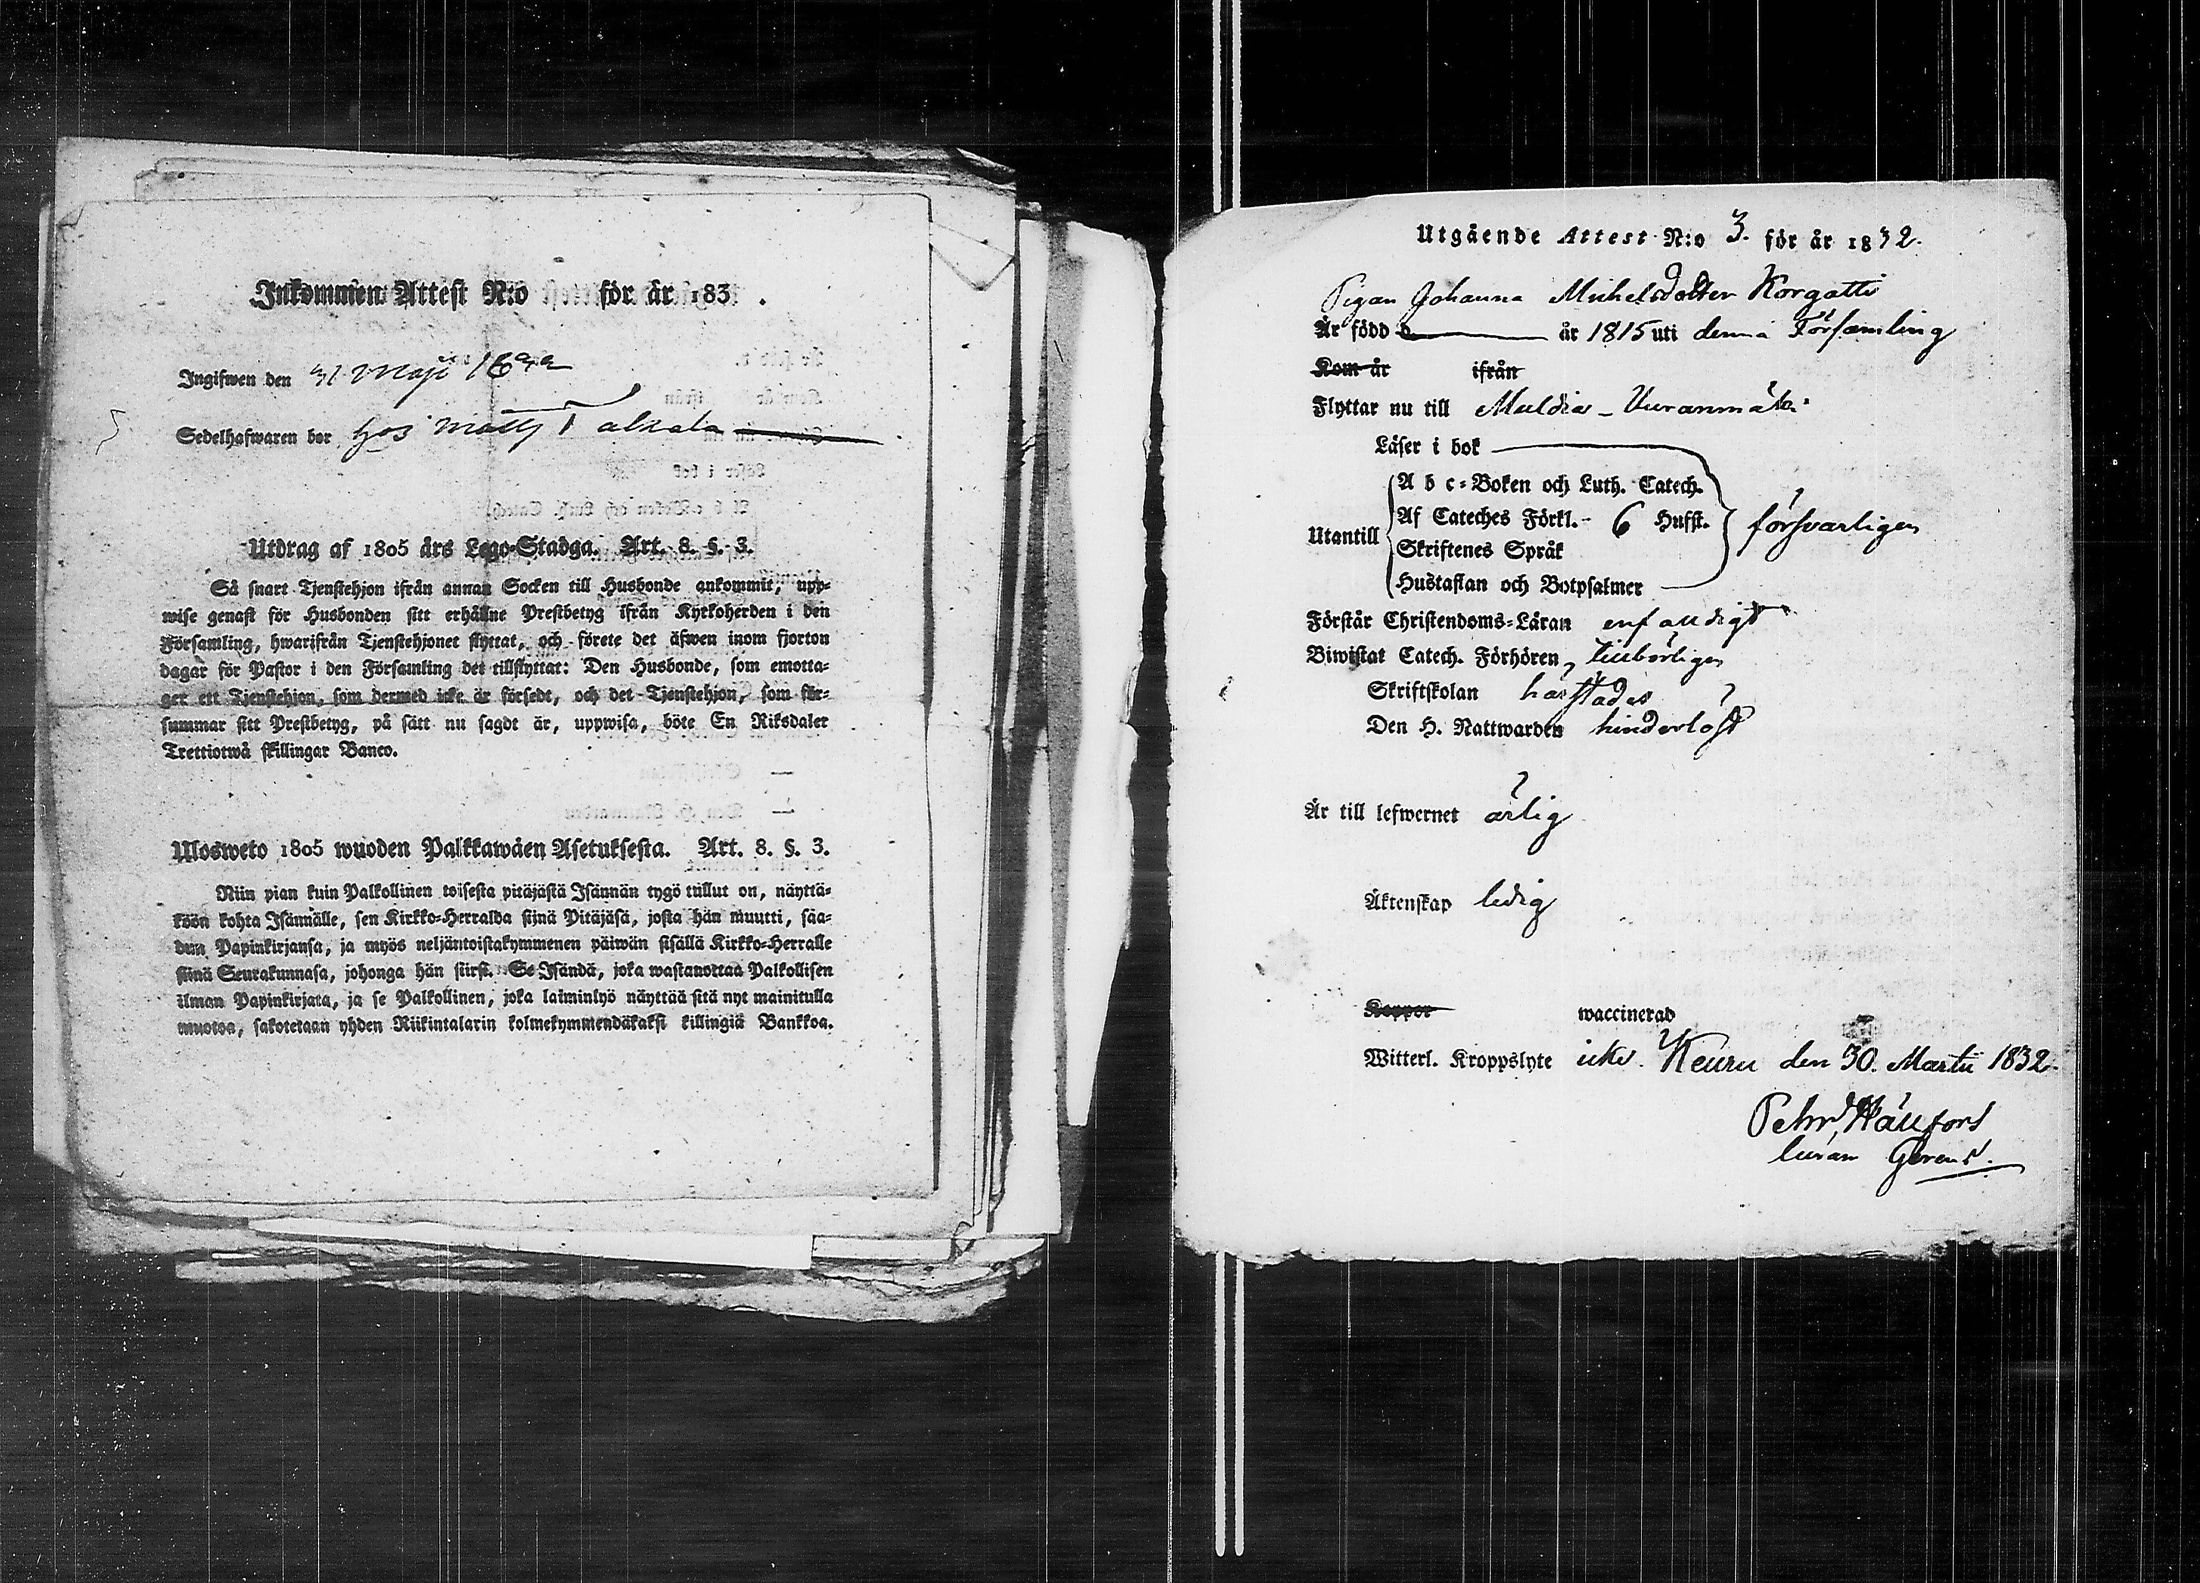 Inkommen Attest N:o för år 183 .
Ingifwen den 31 Maji
Sedelhafwaren bor hos Matts
Utdrag af 1805 års Lego-Stadga. Art. 8. §. 3.
Så snart Tjenstehjon ifrån annan Socken till Husbonde ankommit, upp-
wise genast för Husbonden sitt erhållne Prestbetyg ifrån Kyrkoherden i den
Församling, hwarifrån Tjenstehjonet flyttat, och förete det äfwen inom fjorton
dagar för Pastor i den Församling det tillflyttat: Den Husbonde, som emotta-
ger ett Tjenstehjon, som dermed icke är försedt, och det Tjenstehjon, som för-
summar sitt Prestbetyg, på sätt nu sagdt är, uppwisa, böte En Riksdaler
Trettiotwå skillingar Banco.
Ulosweto 1805 wuoden Palkkawäen Asetuksesta. Art. 8. §. 3.
Niin pian kuin Palkollinen toisesta pitäjästä Isännän tygö tullut on, näyttä-
köön kohta Isännälle, sen Kirkko-Herralda siinä Pitäjäsä, josta hän muutti, saa-
dun Papinkirjansa, ja myös neljäntoistakymmenen päiwän sisällä Kirkko-Herralle
siinä Seurakunnasa, johonga hän siirst. Se Isändä, joka wastanottaa Palkollisen
ilman Papinkirjata, ja se Palkollinen, joka laiminlyö näyttää sitä nyt mainitulla
muotoa, sakotetaan yhden Riikintalarin kolmekymmendäkaksi killingiä Bankkoa.
Utgående Attest N:o 3. för år 1832.
Pigan Johanna Michelsdotter Korgatti
Är född d. år 1815 uti denna Församling
Kom år ifrån
Flyttar nu till Muldia - Vuoranmäki
Läser i bok
A b c-Boken och Luth. Catech.
Af Cateches Förkl. 6 Hufst.
Utantill försvarligen
Skriftenes Språk
Hustaflan och Botpsalmer
Förstår Christendoms-Läran enfaldigt
Biwistat Catech. Förhören, tillbörligen
Skriftskolan härstädes
Den H. Nattwarden hinderlöst
Är till lefwernet ärlig
Äktenskap ledig
Koppor waccinerad
Witterl. Kroppslyte icke. Keuru den 30. Martii 1832.
Pehr Hällfors
Curam Gerens.